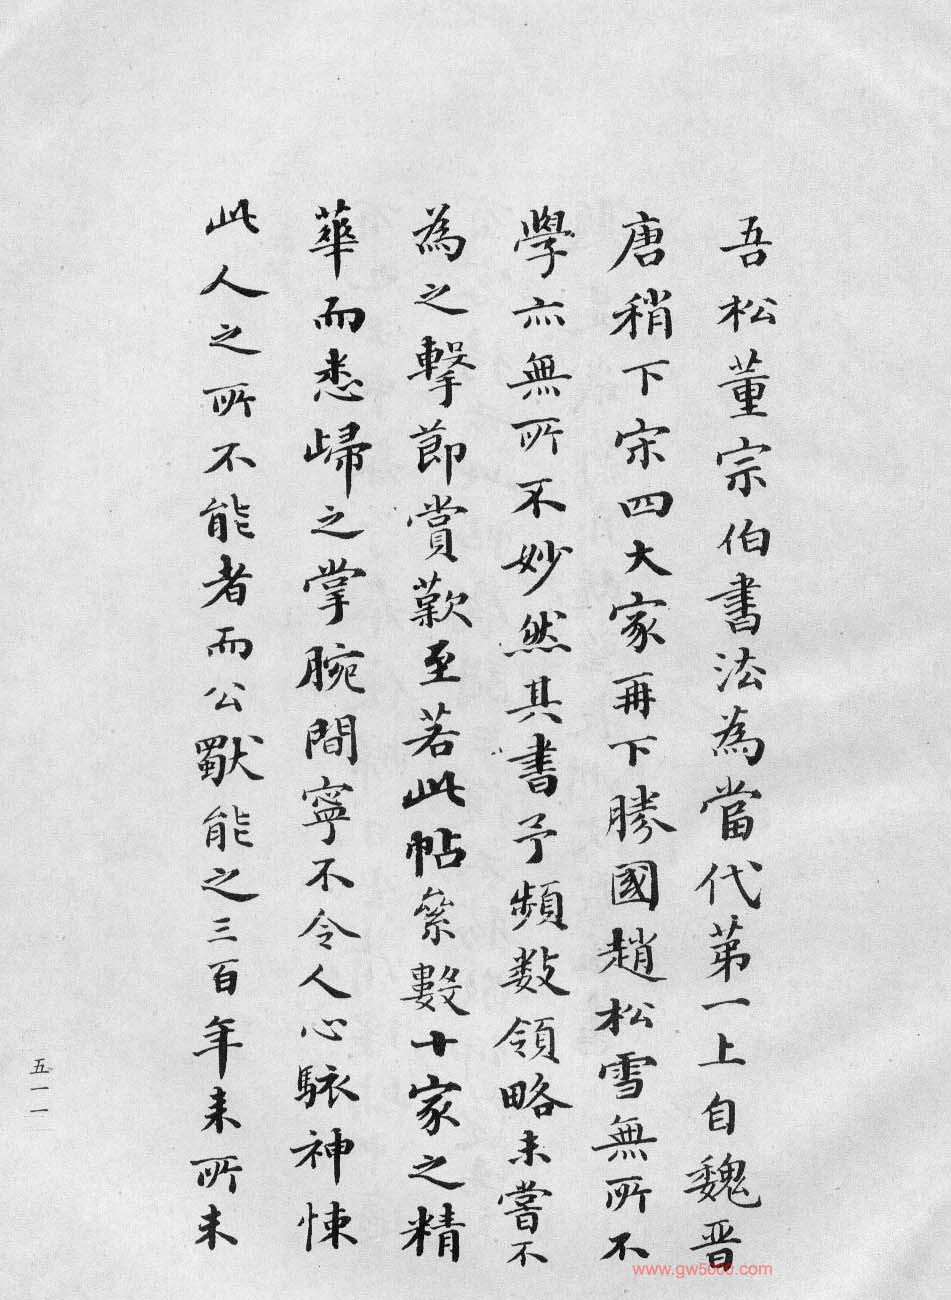 吾松董宗伯書法為當代第一上自魏晋
唐稍下宋四大家再下勝國趙松雪無所不
學亦無所不妙然其書予頻数領略未嘗不
為之擊節賞歎至若此帖彚數十家之精
華而悉歸之掌腕間寧不令人心駭神悚
此人之所不能者而公獸能之三百年来所未
五一一
www.gw5000.com